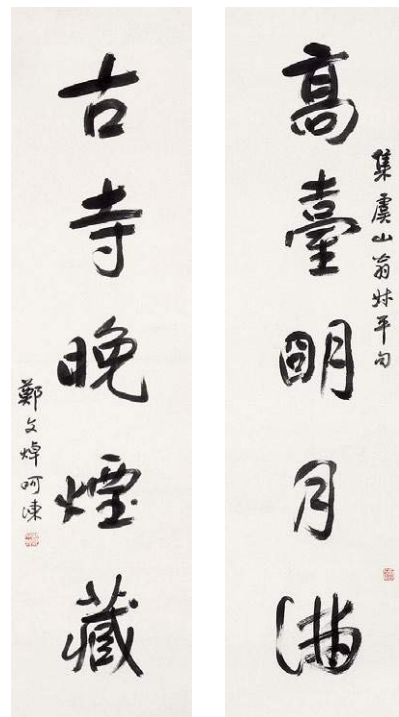 高臺明月滿
集虞山翁叔平句
古寺晚煙藏
鄭文焯呵凍